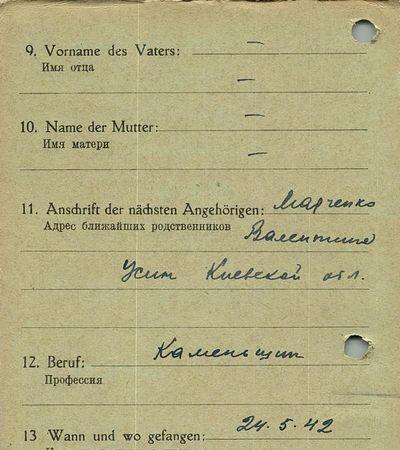 9. Vorname des Vaters: —
Имя отца —
10. Name der Mutter: —
Имя матери —
11. Anschrift der nächsten Angehörigen: Марченко
Адрес ближайших родственников
Киевской обл.
12. Beruf: Каменьщик
Профессия
13 Wann und wo gefangen: 24.5.42